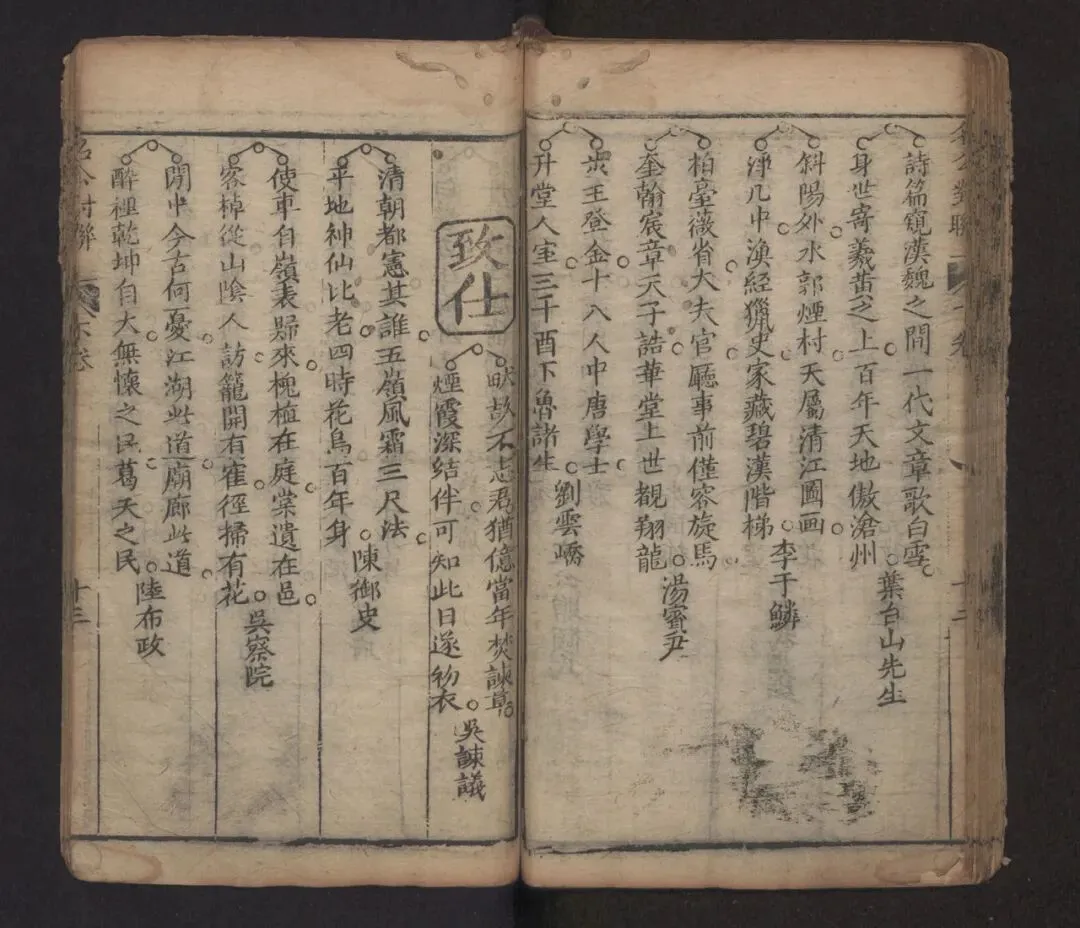 詩篇窺漢魏之間一代文章歌白雪
身世寄羲黃之上百年天地傲滄州
葉台山先生
斜陽外水郭煙村天屬清江圖画
淨几中漁經獵史家藏碧漢階梯
李于鱗
柏臺薇省大夫官廳事前僅容旋馬
奎翰宸章天子誥華堂上世覩翔龍
湯賓尹
步玉登金十八人中唐學士
升堂入室三千酉下魯諸生
劉雲嶠
致仕
畎畝不忘君猶億當年焚諫草
煙霞深結伴可知此日遂初衣
吳諫議
清朝都憲其誰五嶺風霜三尺法
平地神仙比老四時花鳥百年身
陳御史
使車自嶺表歸來槐植在庭棠遺在邑
客棹從山陰人訪籠開有雀徑掃有花
吳察院
閒中今古何憂江湖此道廟廊此道
醉裡乾坤自大無懷之民葛天之民
陸布政
名公對聯
卷
十三